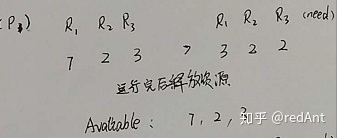 (P₁) R₁ R₂ R₃ R₁ R₂ R₃ (need)
7 2 3 > 3 2 2
运行完后释放资源
Available: 7, 2, 3
知乎 @redAnt